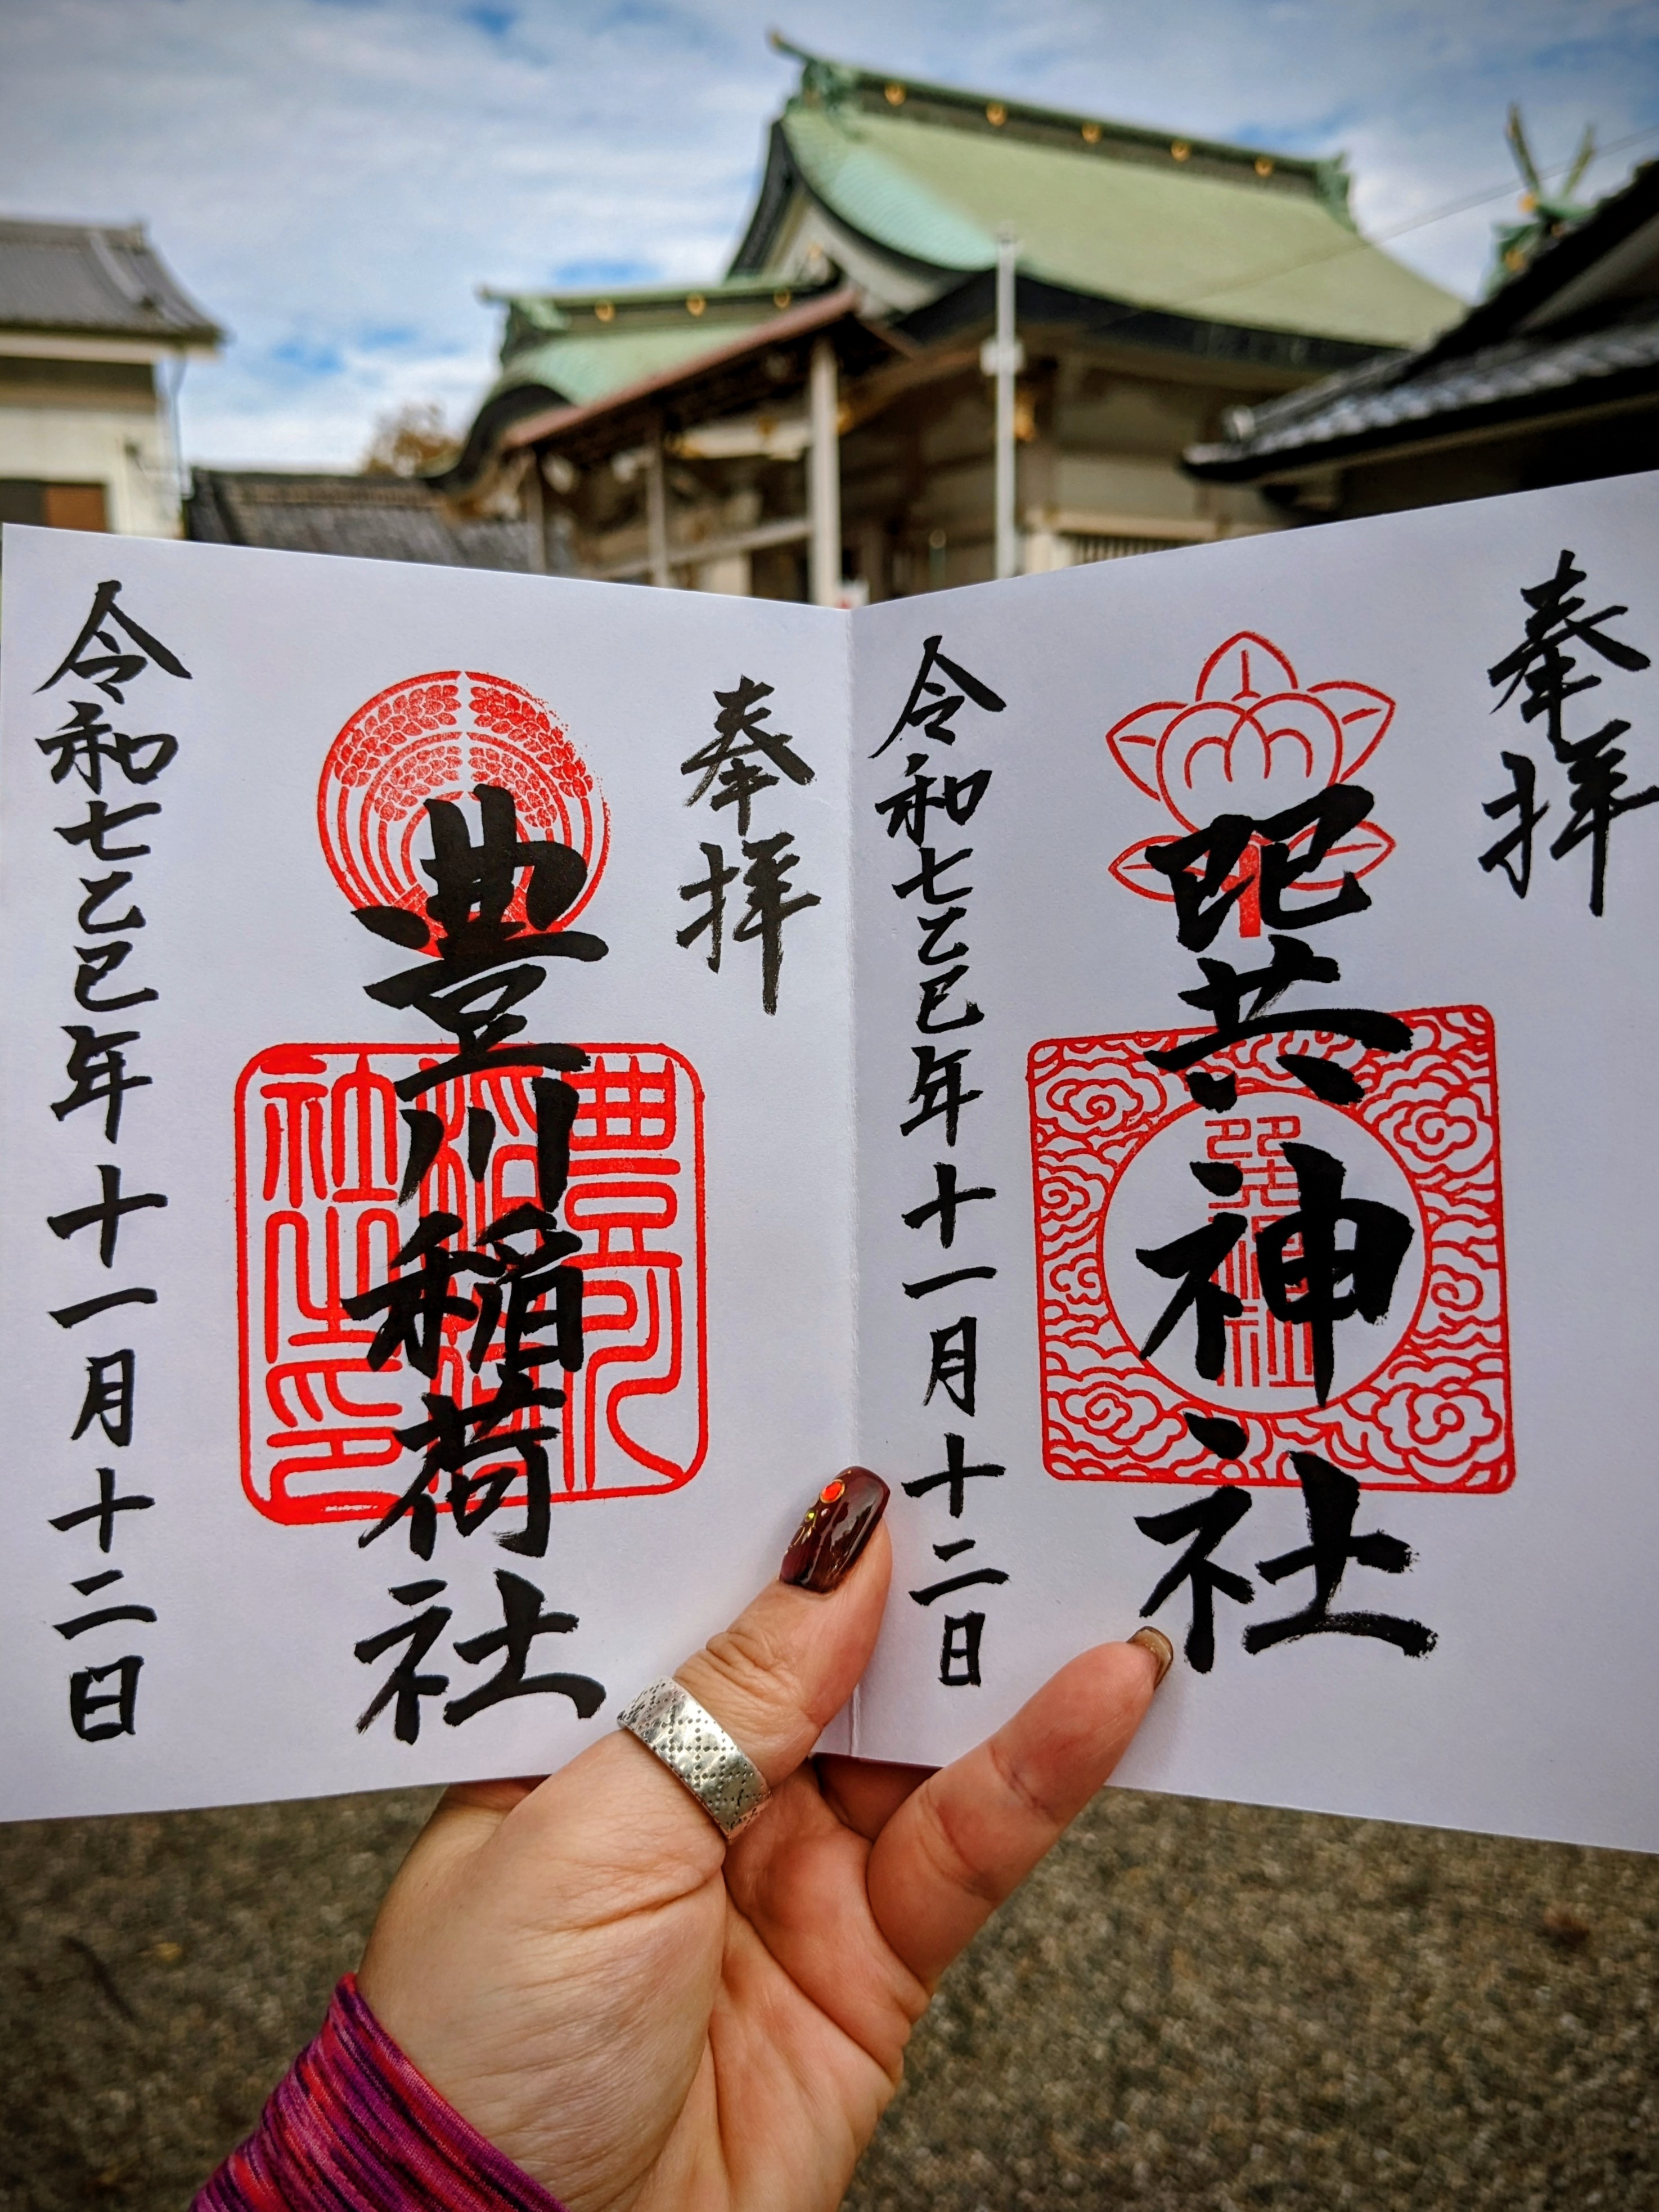 奉拝
巽神社
巽神社
令和七乙巳年十一月十二日
奉拝
豊川稲荷社
豊川
稲荷
社之印
令和七乙巳年十一月十二日